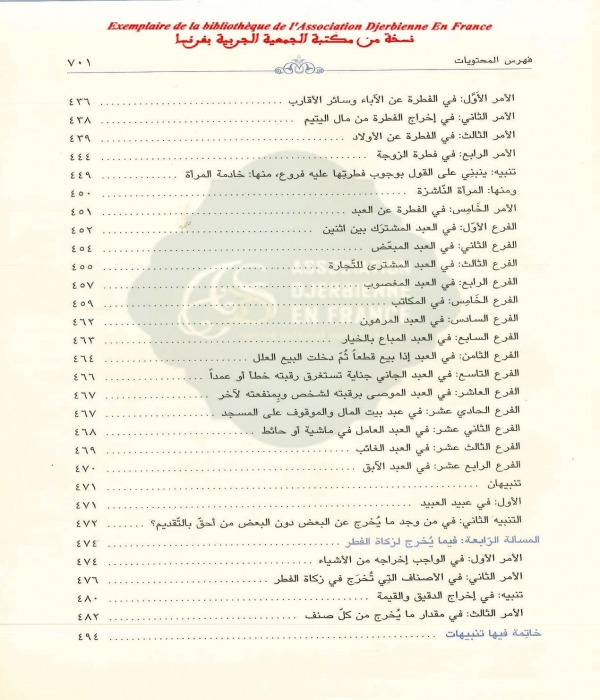 Exemplaire de la bibliothèque de l'Association Djerbienne En France
نسخة من مكتبة الجمعية الجربية بفرنسا
فهرس المحتويات ٧٠١
الأمر الأوّل: في الفطرة عن الآباء وسائر الأقارب ٤٣٦
الأمر الثاني: في إخراج الفطرة من مال اليتيم ٤٣٨
الأمر الثالث: في الفطرة عن الأولاد ٤٣٩
الأمر الرابع: في فطرة الزوجة ٤٤٤
تنبيه: ينبنِي على القول بوجوب فطرتِها عليه فروع، منها: خادمة المرأة ٤٤٩
ومنها: المرأة النّاشزة ٤٥٠
الأمر الخَامِس: في الفطرة عن العبد ٤٥١
الفرع الأوّل: في العبد المشترَك بين اثنين ٤٥٢
الفرع الثاني: في العبد المبعّض ٤٥٤
الفرع الثالث: في العبد المشتري للتّجارة ٤٥٥
الفرع الرابع: في العبد المغصوب ٤٥٧
الفرع الخَامِس: في المكاتب ٤٥٩
الفرع السادس: في العبد المرهون ٤٦٢
الفرع السابع: في العبد المباع بالخيار ٤٦٣
الفرع الثامن: في العبد إذا بيع قطعاً ثُمّ دخلت البيع العلل ٤٦٤
الفرع التاسع: في العبد الجاني جناية تستغرق رقبته خطأ أو عمداً ٤٦٦
الفرع العاشر: في العبد الموصى برقبته لشخص وبِمنفعته لآخر ٤٦٧
الفرع الحادي عشر: في عبد بيت المال والموقوف على المسجد ٤٦٧
الفرع الثاني عشر: في العبد العامل في ماشية أو حائط ٤٦٨
الفرع الثالث عشر: في العبد الغائب ٤٦٩
الفرع الرابع عشر: في العبد الآبق ٤٧٠
تنبيهان ٤٧١
الأول: في عبيد العبيد ٤٧١
التنبيه الثاني: في من وجد ما يُخرج عن البعض دون البعض من أحقّ بالتّقديم؟ ٤٧٢
المسالة الرّابعة: فيما يُخرج لزكاة الفطر ٤٧٤
الأمر الأول: في الواجب إخراجه من الأشياء ٤٧٤
الأمر الثاني: في الأصناف التِي تُخرَج في زكاة الفطر ٤٧٦
تنبيه: في إخراج الدقيق والقيمة ٤٨٠
الأمر الثالث: في مقدار ما يُخرج من كلّ صنف ٤٨٢
خاتِمة فيها تنبيهات ٤٩٤
ASSOCIATION
DJERBIENNE
EN FRANCE